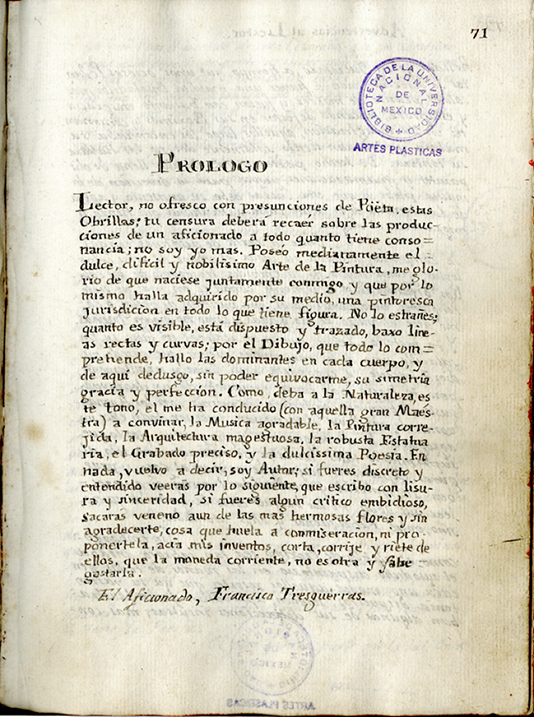 71
BIBLIOTECA DE LA UNIVERSIDAD
NACIONAL
DE
MEXICO
ARTES PLASTICAS
PROLOGO
Lector, no ofresco con presunciones de Poëta, estas
Obrillas; tu censura deberá recaér sobre las produc-
ciones de un aficionado a todo quanto tiene conso=
nancia; no soy yo mas. Poseo medianamente el
dulce, dificil y nobilisimo Arte de la Pintura, me glo
rio de que naciese juntamente conmigo y que por lo
mismo halla adquirido por su medio, una pintoresca
jurisdicion en todo lo que tiene figura. No lo estrañes;
quanto es visible, está dispuesto y trazado, baxo line
as rectas y curvas; por el Dibujo, que todo lo com=
prehende, hallo las dominantes en cada cuerpo, y
de aqui dedusgo, sin poder equivocarme, su simetria
gracia y perfeccion. Como, deba a la Naturaleza, es
te tono, el me ha conducido (con aquella gran Maes
tra) a convinar, la Musica agradable, la Pintura corre-
jida, la Arquitectura magestuosa, la robusta Estatua
ria, el Grabado preciso, y la dulcissima Poesia. En
nada, vuelvo a decir, soy Autor; si fueres discreto y
entendido veeras por lo siguiente, que escribo con lisu
ra y sinceridad, si fueres algun critico embidioso,
sacaras veneno aun de las mas hermosas flores y sin
agradecerte, cosa que huela a conmiseracion, ni pro
ponertela, acia mis inventos, corta, corrije y riete de
ellos, que la moneda corriente, no es otra y sabe
gastarla.
El Aficionado, Francisco Tresguerras.